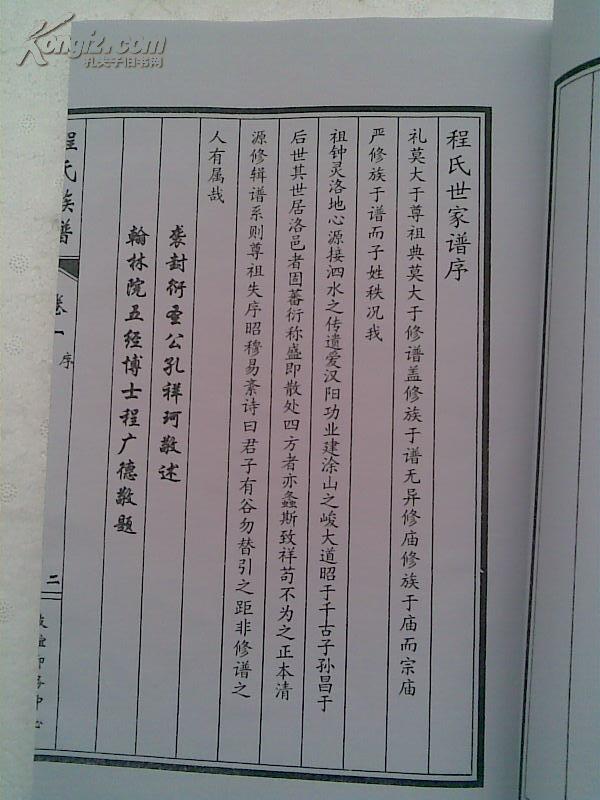 程氏世家谱序
礼莫大于尊祖典莫大于修谱盖修族于谱无异修庙修族于庙而宗庙
严修族于谱而子姓秩况我
祖钟灵洛地心源接泗水之传遗爱汉阳功业建涂山之峻大道昭于千古子孙昌于
后世其世居洛邑者固蕃衍称盛即散处四方者亦螽斯致祥苟不为之正本清
源修辑谱系则尊祖失序昭穆易紊诗曰君子有谷勿替引之距非修谱之
人有属哉
袭封衍圣公孔祥珂敬述
翰林院五经博士程广德敬题
程氏族谱
卷一
序
二
印务中心
Kongfz.com
孔夫子旧书网